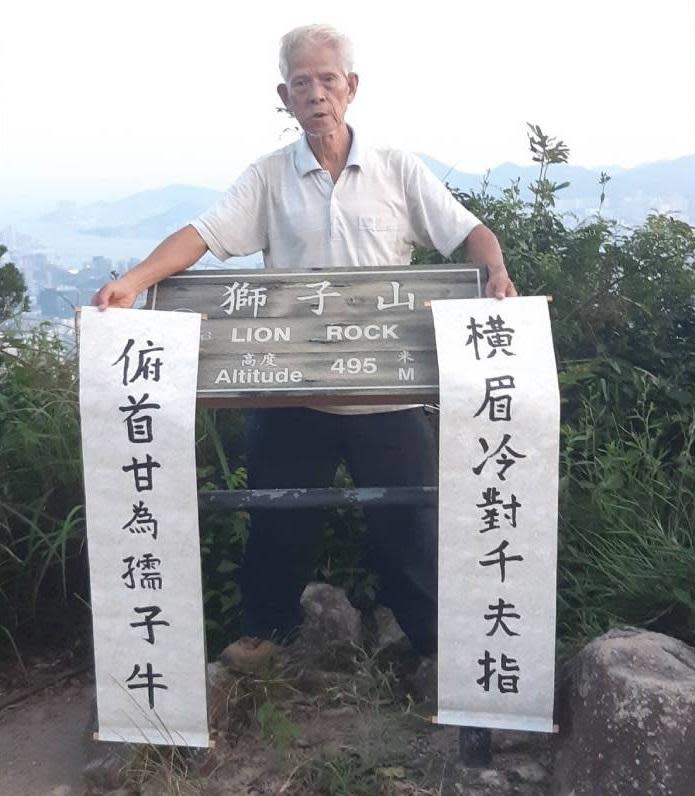 獅子山
LION ROCK
高度 495 米
Altitude M
橫眉冷對千夫指
俯首甘為孺子牛